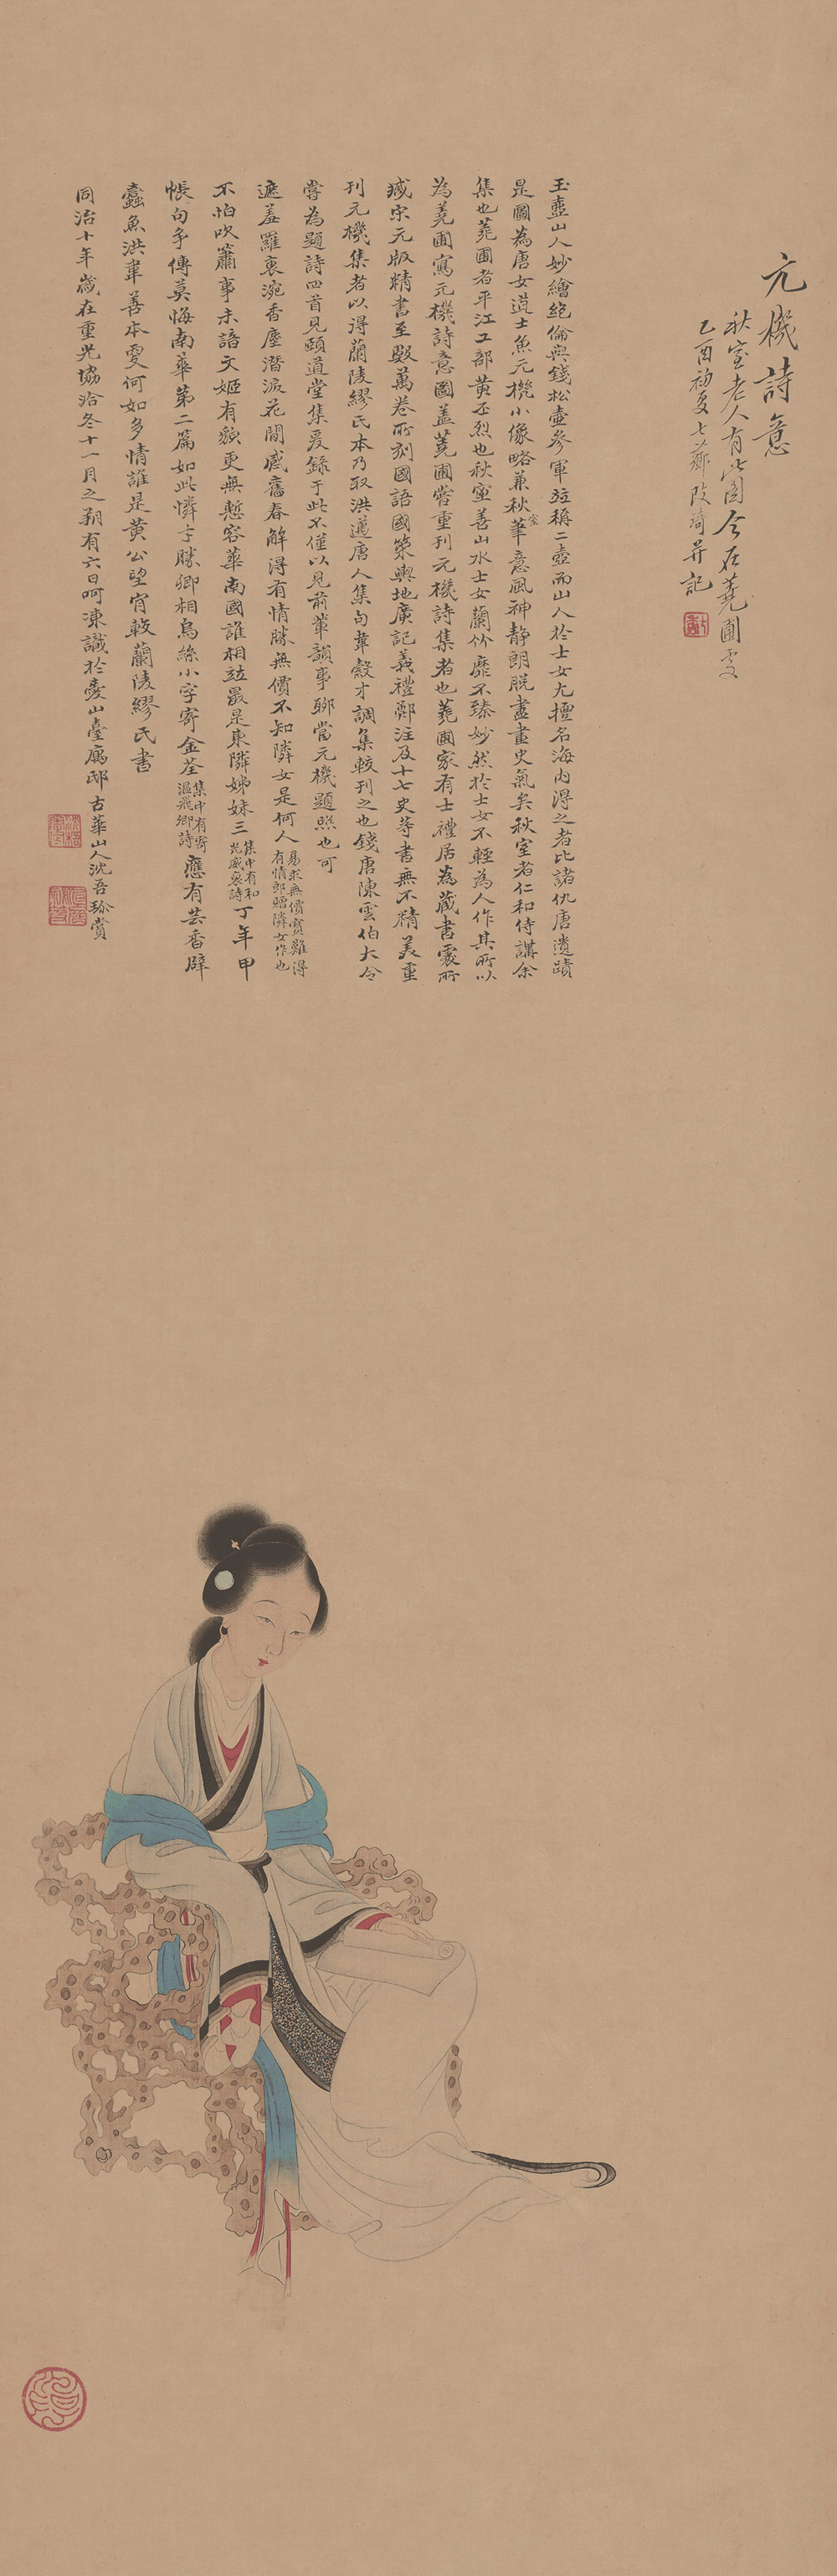 元機詩意
秋室老人有此圖今在蕘圃處
乙酉初夏七薌改琦并記
玉壺山人妙繪絕倫與錢松壺參軍竝稱二壺而山人於士女尤擅名海內得之者比諸仇唐遺蹟
是圖為唐女道士魚元機小像略兼秋室筆意風神靜朗脫盡畫史氣矣秋室者仁和侍講余
集也蕘圃者平江工部黃丕烈也秋室善山水士女蘭竹靡不臻妙然於士女不輕為人作其所以
為蕘圃寫元機詩意圖蓋蕘圃嘗重刊元機詩集者也蕘圃家有士禮居為藏書處所
臧宋元版精書至數萬卷所刻國語國策輿地廣記義禮鄭注及十七史等書無不精美重
刊元機集者以得蘭陵繆氏本乃取洪邁唐人集句韋縠才調集較刊之也錢唐陳雲伯大令
嘗為題詩四首見頤道堂集爰錄于此不僅以見前輩韻事聊當元機題照也可
遮羞羅褱涴香塵潛淚花間感舊春解得有情勝無價不知隣女是何人易求無價寶難得有情郎贈隣女作也
不怕吹簫事未諳文姬有貌更無慙容華南國誰相竝最是東隣姊妹三集中有和光威裒詩丁年甲
帳句爭傳莫悔南華第二篇如此憐才勝卿相烏絲小字寄金荃集中有寄溫飛卿詩應有芸香辟
蠹魚洪韋善本更何如多情誰是黃公望肯較蘭陵繆氏書
同治十年歲在重光協洽冬十一月之朔有六日呵凍識於愛山臺寓邸古華山人沈吾珍賞